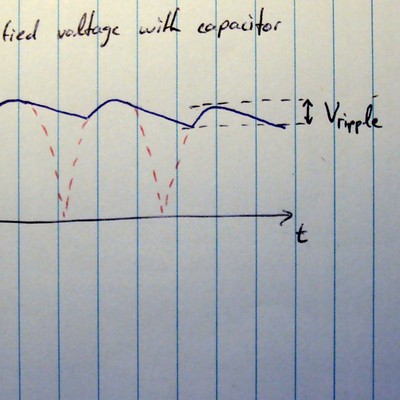 fied voltage with capacitor
Vripple
t